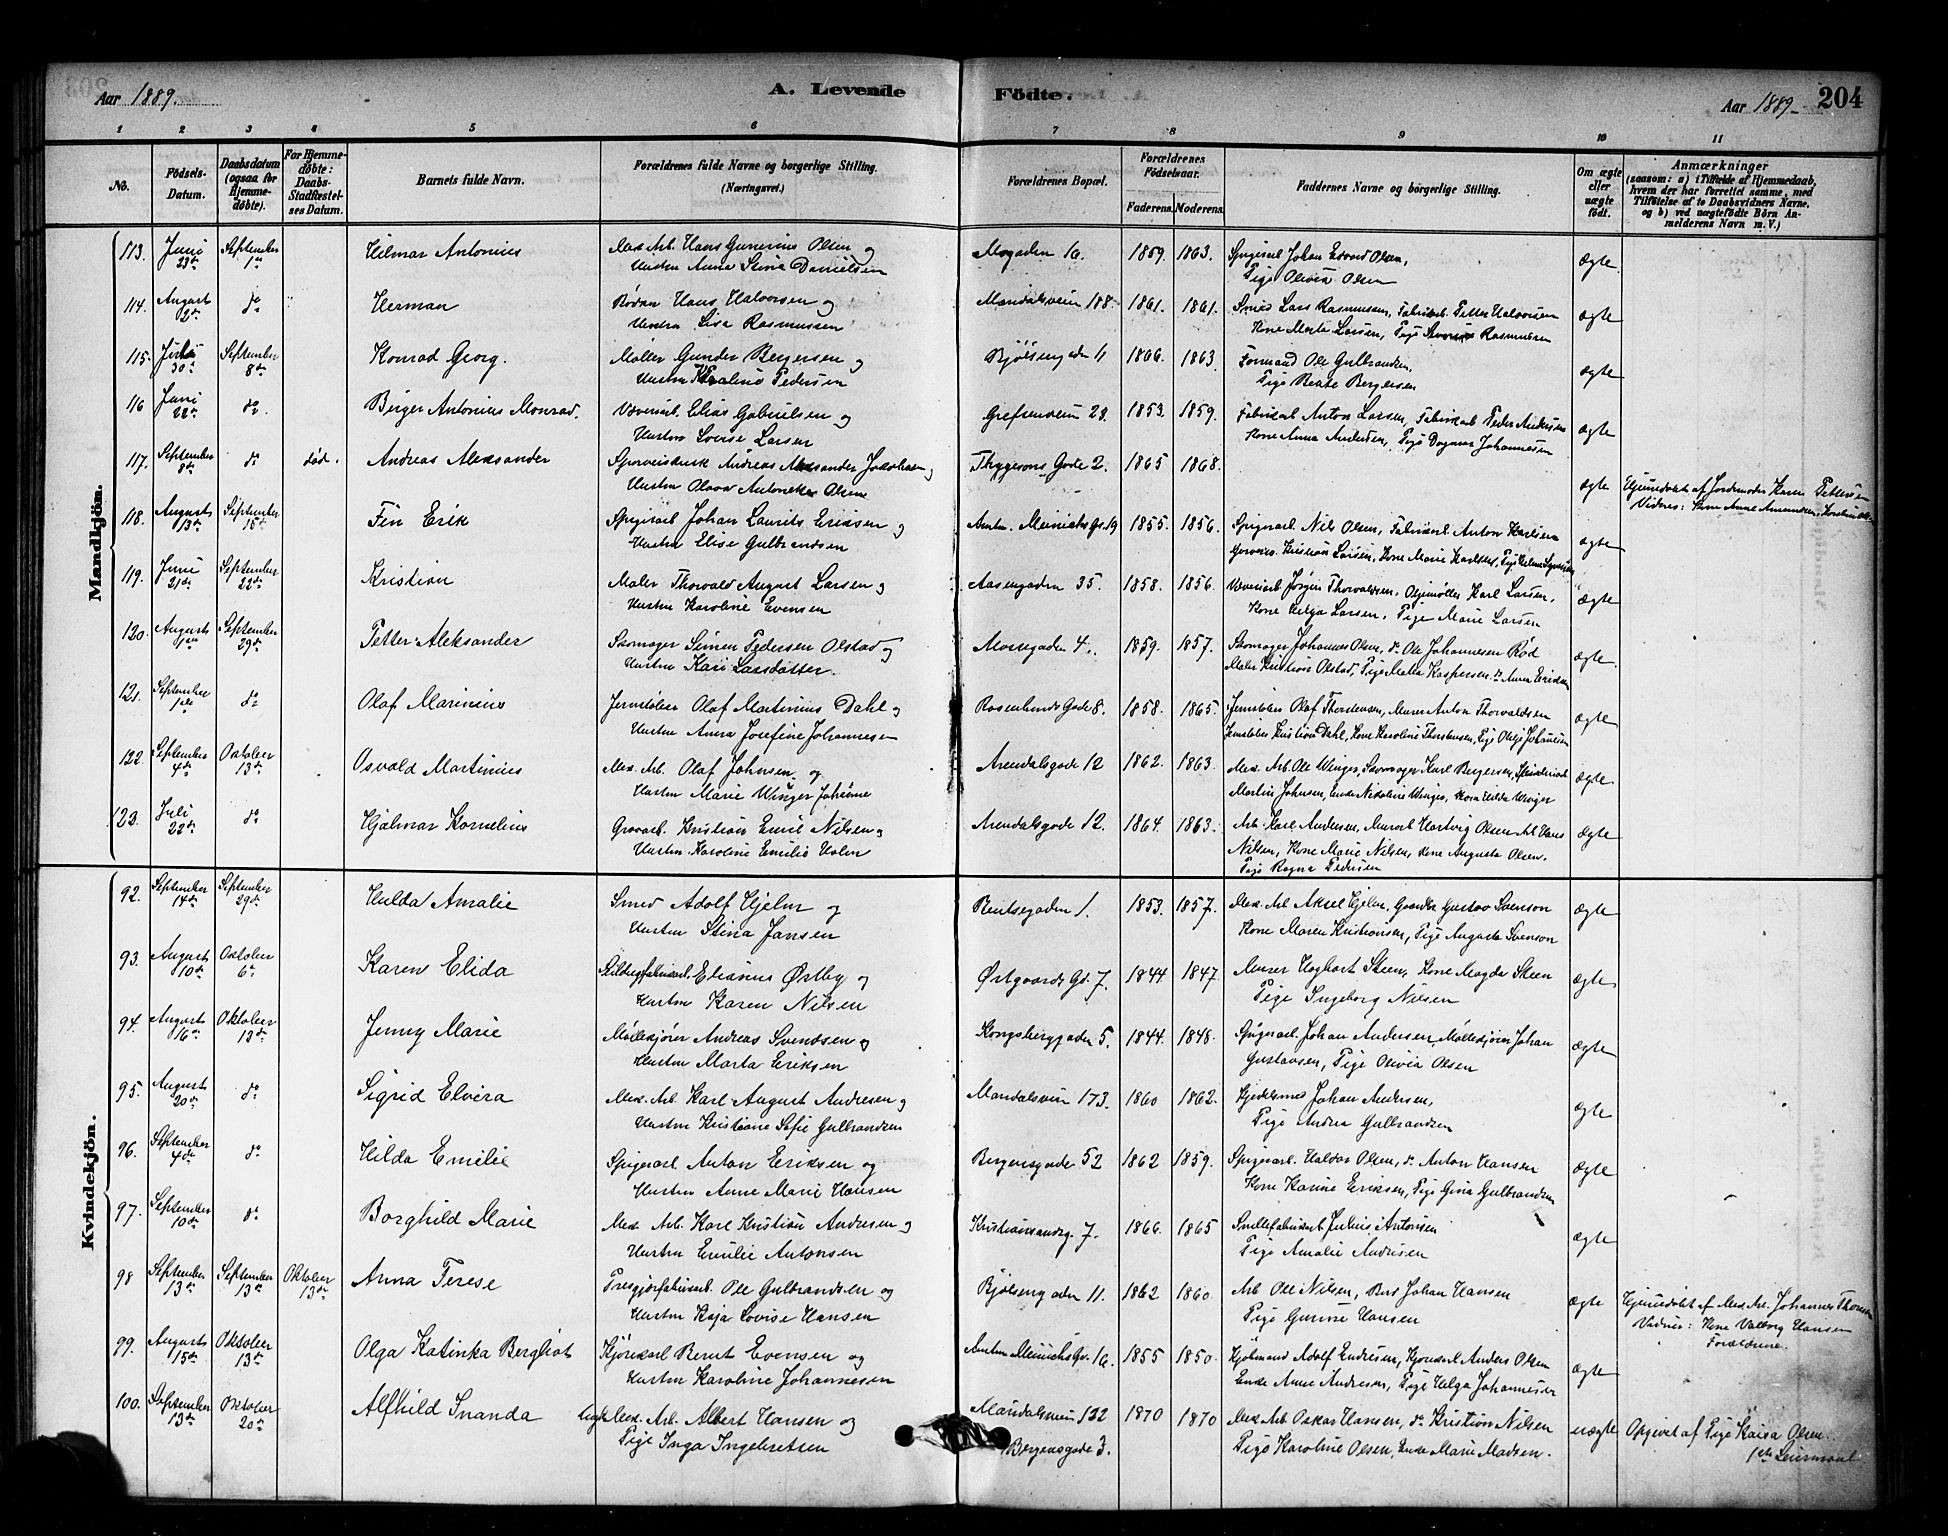 Aar 1889. A. Levende Födte. Aar 1889 204
1 2 3 4 5 6 7 8 9 10 11
No. Födsels-Datum. Daabsdatum (ogsaa for Hjemme-döbte). For Hjemme-döbte: Daabs-Stadfæstel-ses Datum. Barnets fulde Navn. Forældrenes fulde Navne og borgerlige Stilling. (Næringsvei.) Forældrenes Bopæl. Forældrenes Födselsaar. Faderens. Moderens. Faddernes Navne og borgerlige Stilling. Om ægte eller uægte født. Anmærkninger (saasom: a) i Tilfælde af Hjemmedaab, hvem der har forrettet samme, med Tilföielse af to Daabsvidners Navne, og b) ved uægtefödte Börn An-melderens Navn m.V.)
Mandkjön.
113. Juni 23de September 1ste Hilmar Antonius Mek. Arb. Hans Gunerius Olsen og Mogaden 16. 1859. 1863. Spigerarb. Johan Edvard Olsen, ægte.
Hustru Anna Stina Danielsen Pige Olivia Olsen
114. August 2den do Herman Hans Halvorsen og Mandalsveien 188. 1861. 1861. Smed Lars Rasmussen, Fabrikarb. Petter Halvorsen ægte
Hustru Lisa Rasmussen Kone Marte Larsen, Pige Rasmussen
115. 30te September 8de Konrad Georg. Møller Gunder Bergersen og Bjølsengaden 11 1866. 1863. Formand Ole Gulbrandsen, ægte
Hustru Pedersen Pige Beate Bergersen
116 Juni 22de do. Birger Antonius Monrad. Væveriarb. Elias Gabrielsen og Grefsenveien 28. 1853. 1859. Fabrikarb. Anton Larsen, Fabrikarb. Peder Andersen ægte
Hustru Lovise Larsen Kone Anna Andersen, Pige Dagmar Johannesen
117. September 8de do død. Andreas Aleksander Sporveiskusk Andreas Aleksander Jakobsen og Thygesons Gade 2. 1865 1868. ægte Hjemmedøbt af Jordemoder Karen Pettersen
Hustru Olava Olsen Vidner: Kone Anne Amundsen,
118. August 13de September 15de Fin Erik Spigerarb. Johan Laurits Eriksen og Anton Meinichs Gd. 19 1855. 1856. Spigerarb. Nils Olsen, Fabrikarb. Anton Karlsen ægte
Hustru Elise Gulbrandsen Kristian Larsen, Kone Marie Karlsen,
119. Juni 21de September 22de Kristian Maler Thorvald August Larsen og Aasengaden 35. 1858. 1856. Væveriarb. Jørgen Thorvaldsen, Oljemøller Karl Larsen, ægte
Hustru Karoline Evensen Kone Helga Larsen, Pige Marie Larsen
120. August September 29de Petter Aleksander Skomager Simen Pedersen Olstad og Mossegaden 4. 1859. 1857. Skomager Johannes Olsen, do Ole Johannesen Rød ægte.
Hustru Kari Larsdatter. Maler Kristian Olstad, Pige Mella Kaspersen, do Anna Eriksen
121. September 1ste do Olaf Marinius Jernstøber Olaf Martinius Dahl og Rosenlunds Gade 8. 1858. 1865. Jernstøber Olaf Thorstensen, Murer Anton Thorvaldsen ægte
Hustru Anna Josefine Johannesen Jernstøber Kristian Dahl, Kone Karoline Thorstensen, Pige Olga Johannesen
122. September 4de Oktober 13de Osvald Martinius Mek. Arb. Olaf Johnsen og Arendalsgade 12 1862. 1863. Mek. Arb. Ole Winger, Skomager Karl Bergersen, ægte
Hustru Marie Winger Johnsen Martin Johnsen, Enke Nikoline Winger, Kone Hilda Winger
123. Juli 22de do Hjalmar Kornelius Gravarb. Kristian Emil Nilsen og Arendalsgade 12. 1864. 1863. Arb. Karl Andersen, Murarb. Hartvig Olsen, Arb. Hans ægte
Hustru Karoline Emilie Holm Nilsen, Kone Marie Nilsen, Kone Augusta Olsen.
Pige Ragna Pedersen
Kvindekjön.
92. September 14de September 29de Hilda Amalie Smed Adolf Hjelm og Bentsegaden 1. 1853. 1857. Mek. Arb. Aksel Hjelm, Gustav Svenson ægte
Hustru Stina Jansen Kone Maren Kristiansen, Pige Augusta Svenson
93. August 10de Oktober 6te Karen Elida Elianus Østby og Østgaards Gd. 7. 1844 1847. Murer Hagbart Steen, Kone Magda Steen ægte
Hustru Karen Nilsen Pige Ingeborg Nilsen
94. August 16de Oktober 13de Jenny Marie Møllekjører Andreas Svendsen og Kongsberggaden 5. 1844. 1848. Spigerarb. Johan Andersen, Møllekjører Johan ægte
Hustru Marta Eriksen Gustavsen, Pige Olivia Olsen
95. August 20de do Sigrid Elvira Mek. Arb. Karl August Andresen og Mandalsveien 173. 1860 1862. Kjedelsmed Johan Andersen, ægte
Hustru Kristiane Sofie Gulbrandsen Pige Andrea Gulbrandsen
96. September 4de do Hilda Emilie Spigerarb. Anton Eriksen og Bergensgade 52 1862 1859. Spigerarb. Haldor Olsen, do Anton Hansen ægte
Hustru Anne Marie Hansen Kone Karine Eriksen, Pige Gina Gulbrandsen
97. September 10de do Borghild Marie Mek. Arb. Karl Kristian Andresen og Kristiansandsg. 7. 1866. 1865 Julius Antonsen ægte
Hustru Emilie Antonsen Pige Amalie Andresen
98 September 13de September 13de Oktober 13de Anna Terese Ole Gulbrandsen og Bjølsengaden 11. 1862 1860. Arb. Ole Nilsen, Johan Hansen ægte Hjemmedøbt af Mek. Arb. Johannes
Hustru Kaja Lovise Hansen Pige Gunne Hansen Vidner: Kone Valborg Hansen
Forældrene.
99. August 15de Oktober 13de Olga Katinka Bergliot Kjørekarl Bernt Evensen og Anton Meinichsg. 16. 1855 1850. Adolf Endresen, Kjørekarl Anders Olsen ægte
Hustru Karoline Johannesen Enke Anne Andresen, Pige Helga Johannesen
100. September 13de Oktober 20de Alfhild Inanda Ungk. Mek. Arb. Albert Hansen og Mandalsveien 132 1870 1870 Mek. Arb. Oskar Hansen, do Kristian Nilsen uægte Opgivet af Pige Kaisa Olsen.
Pige Inga Ingebretsen Bergensgade 3. Pige Karoline Olsen, Enke Marie Madsen. 1ste Leiermaal